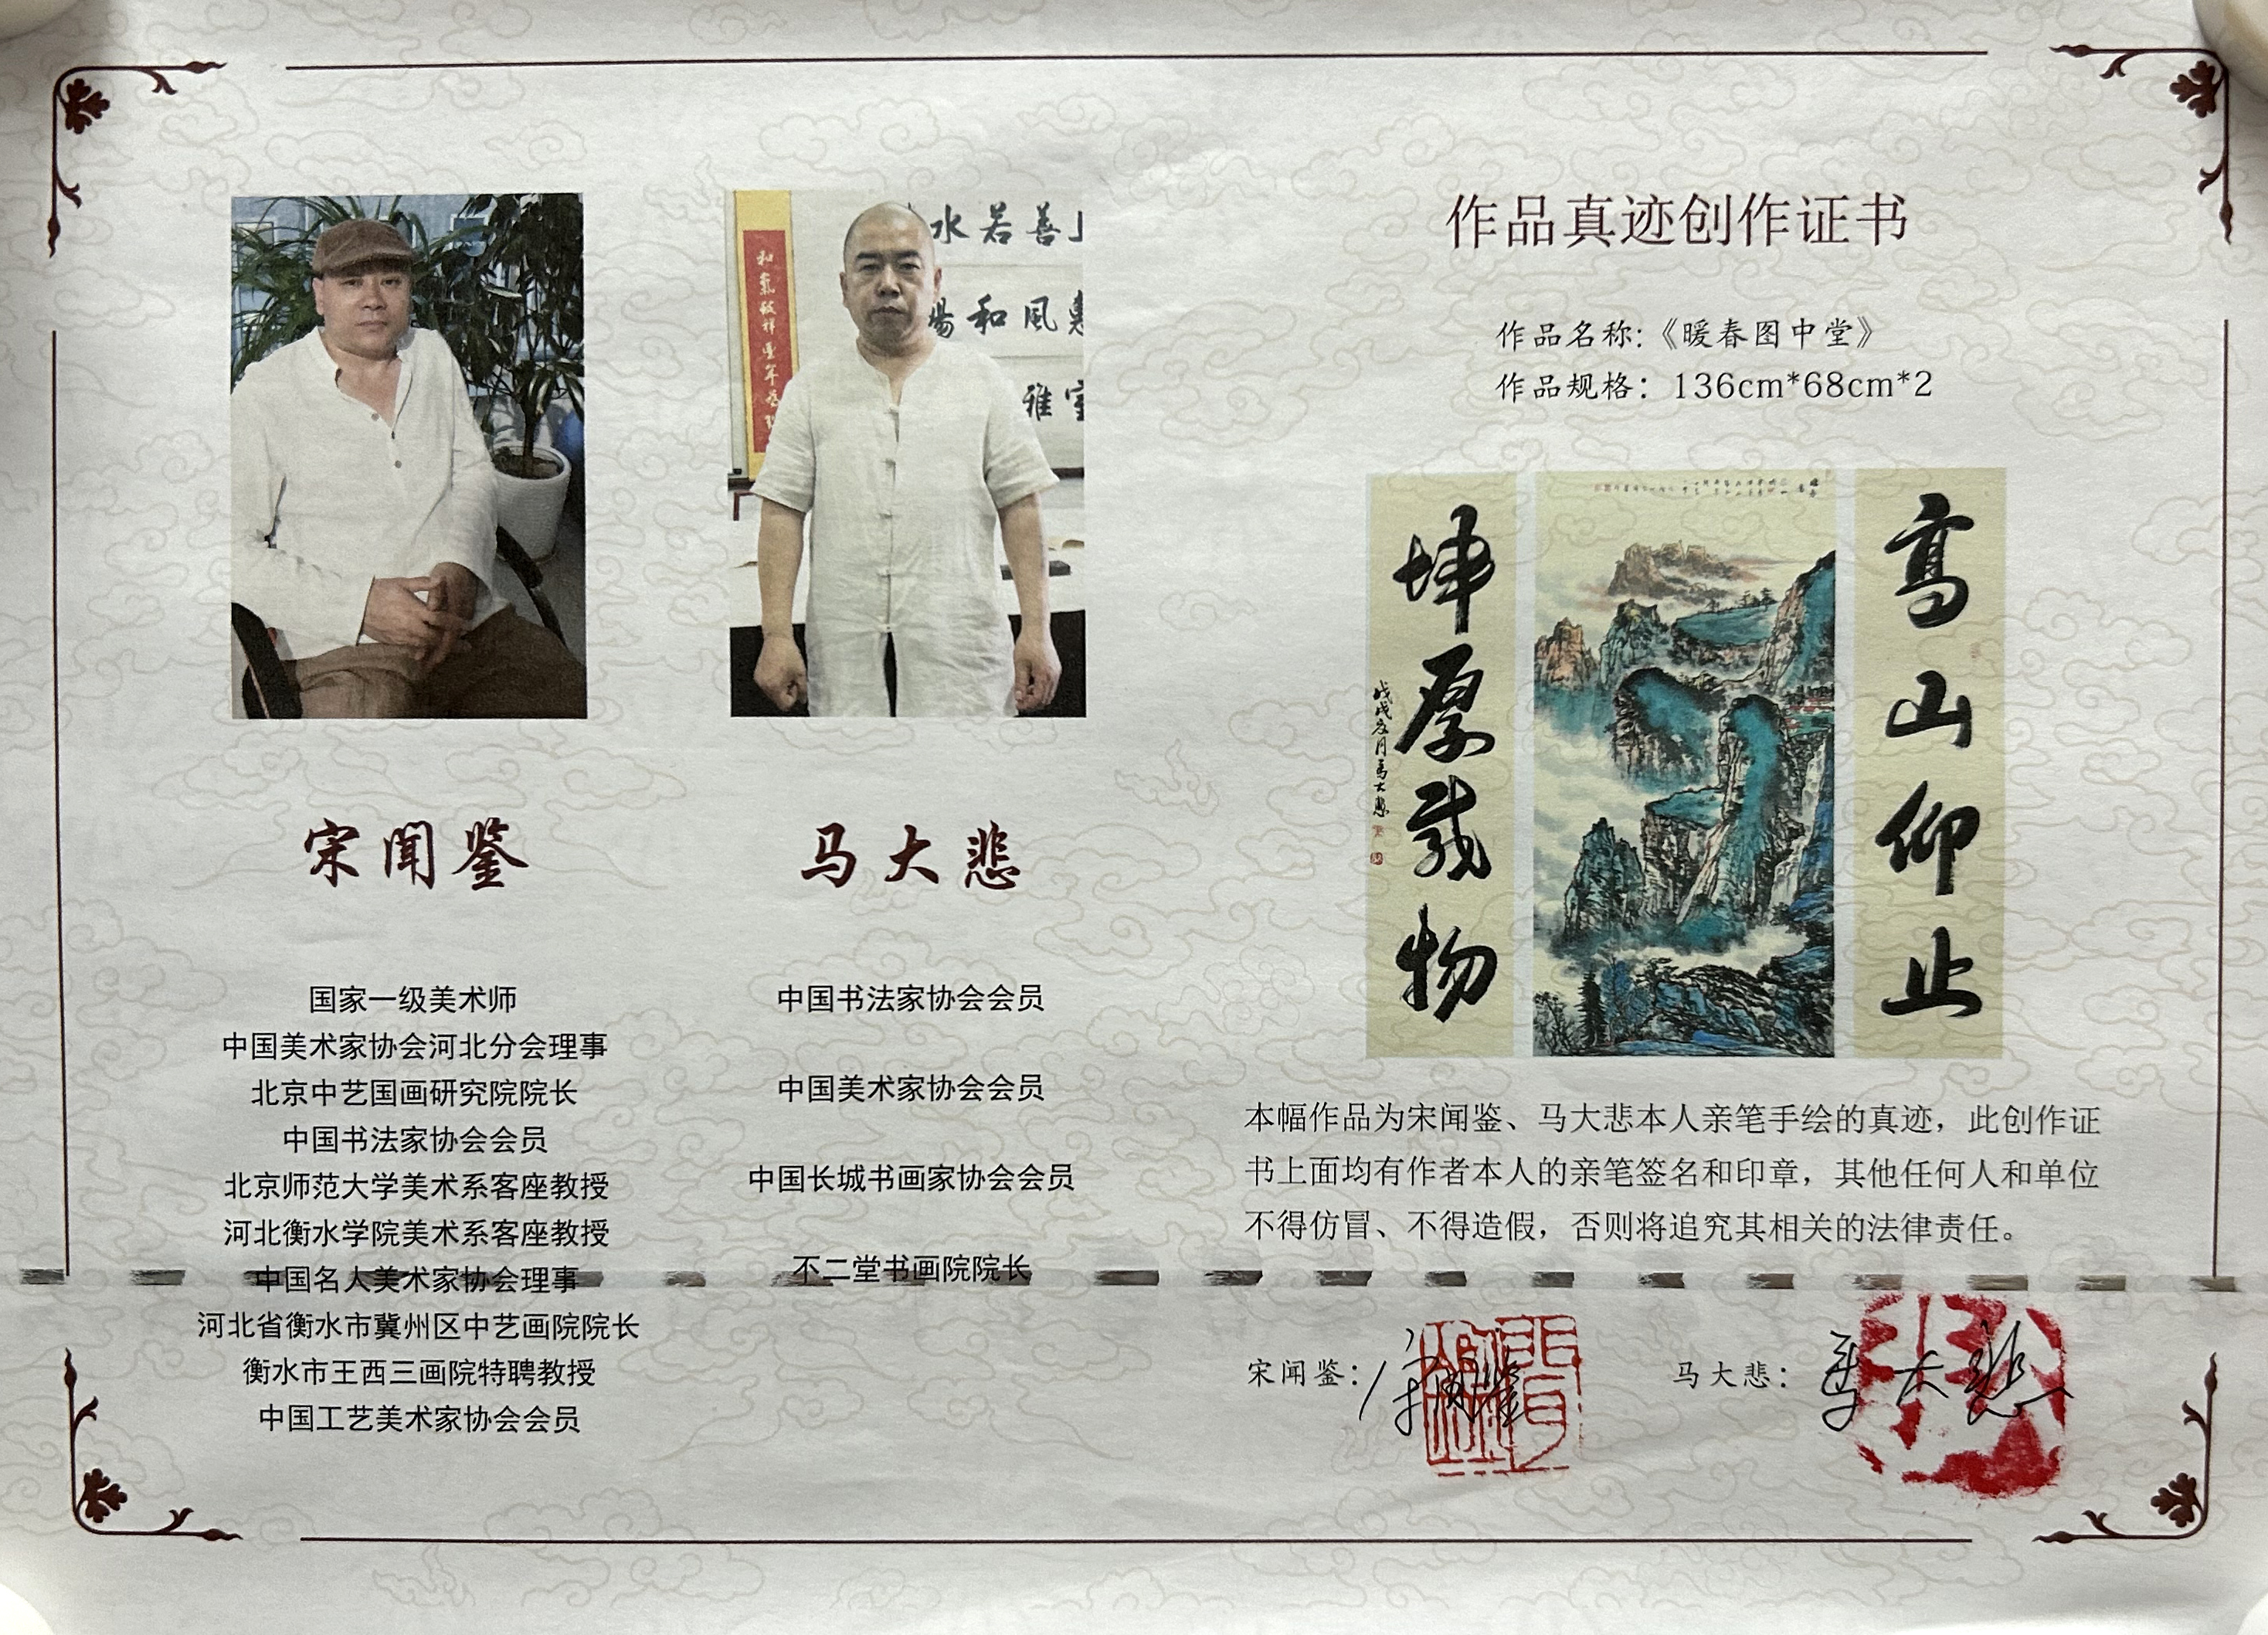 水若善上
和氣致祥
暢和風惠
雅室
宋闻鉴
国家一级美术师
中国美术家协会河北分会理事
北京中艺国画研究院院长
中国书法家协会会员
北京师范大学美术系客座教授
河北衡水学院美术系客座教授
中国名人美术家协会理事
河北省衡水市冀州区中艺画院院长
衡水市王西三画院特聘教授
中国工艺美术家协会会员
马大悲
中国书法家协会会员
中国美术家协会会员
中国长城书画家协会会员
不二堂书画院院长
作品真迹创作证书
作品名称:《暖春图中堂》
作品规格：136cm*68cm*2
高山仰止
坤厚载物
戊戌 月马大悲
本幅作品为宋闻鉴、马大悲本人亲笔手绘的真迹，此创作证
书上面均有作者本人的亲笔签名和印章，其他任何人和单位
不得仿冒、不得造假，否则将追究其相关的法律责任。
宋闻鉴：宋闻鉴
马大悲：马大悲